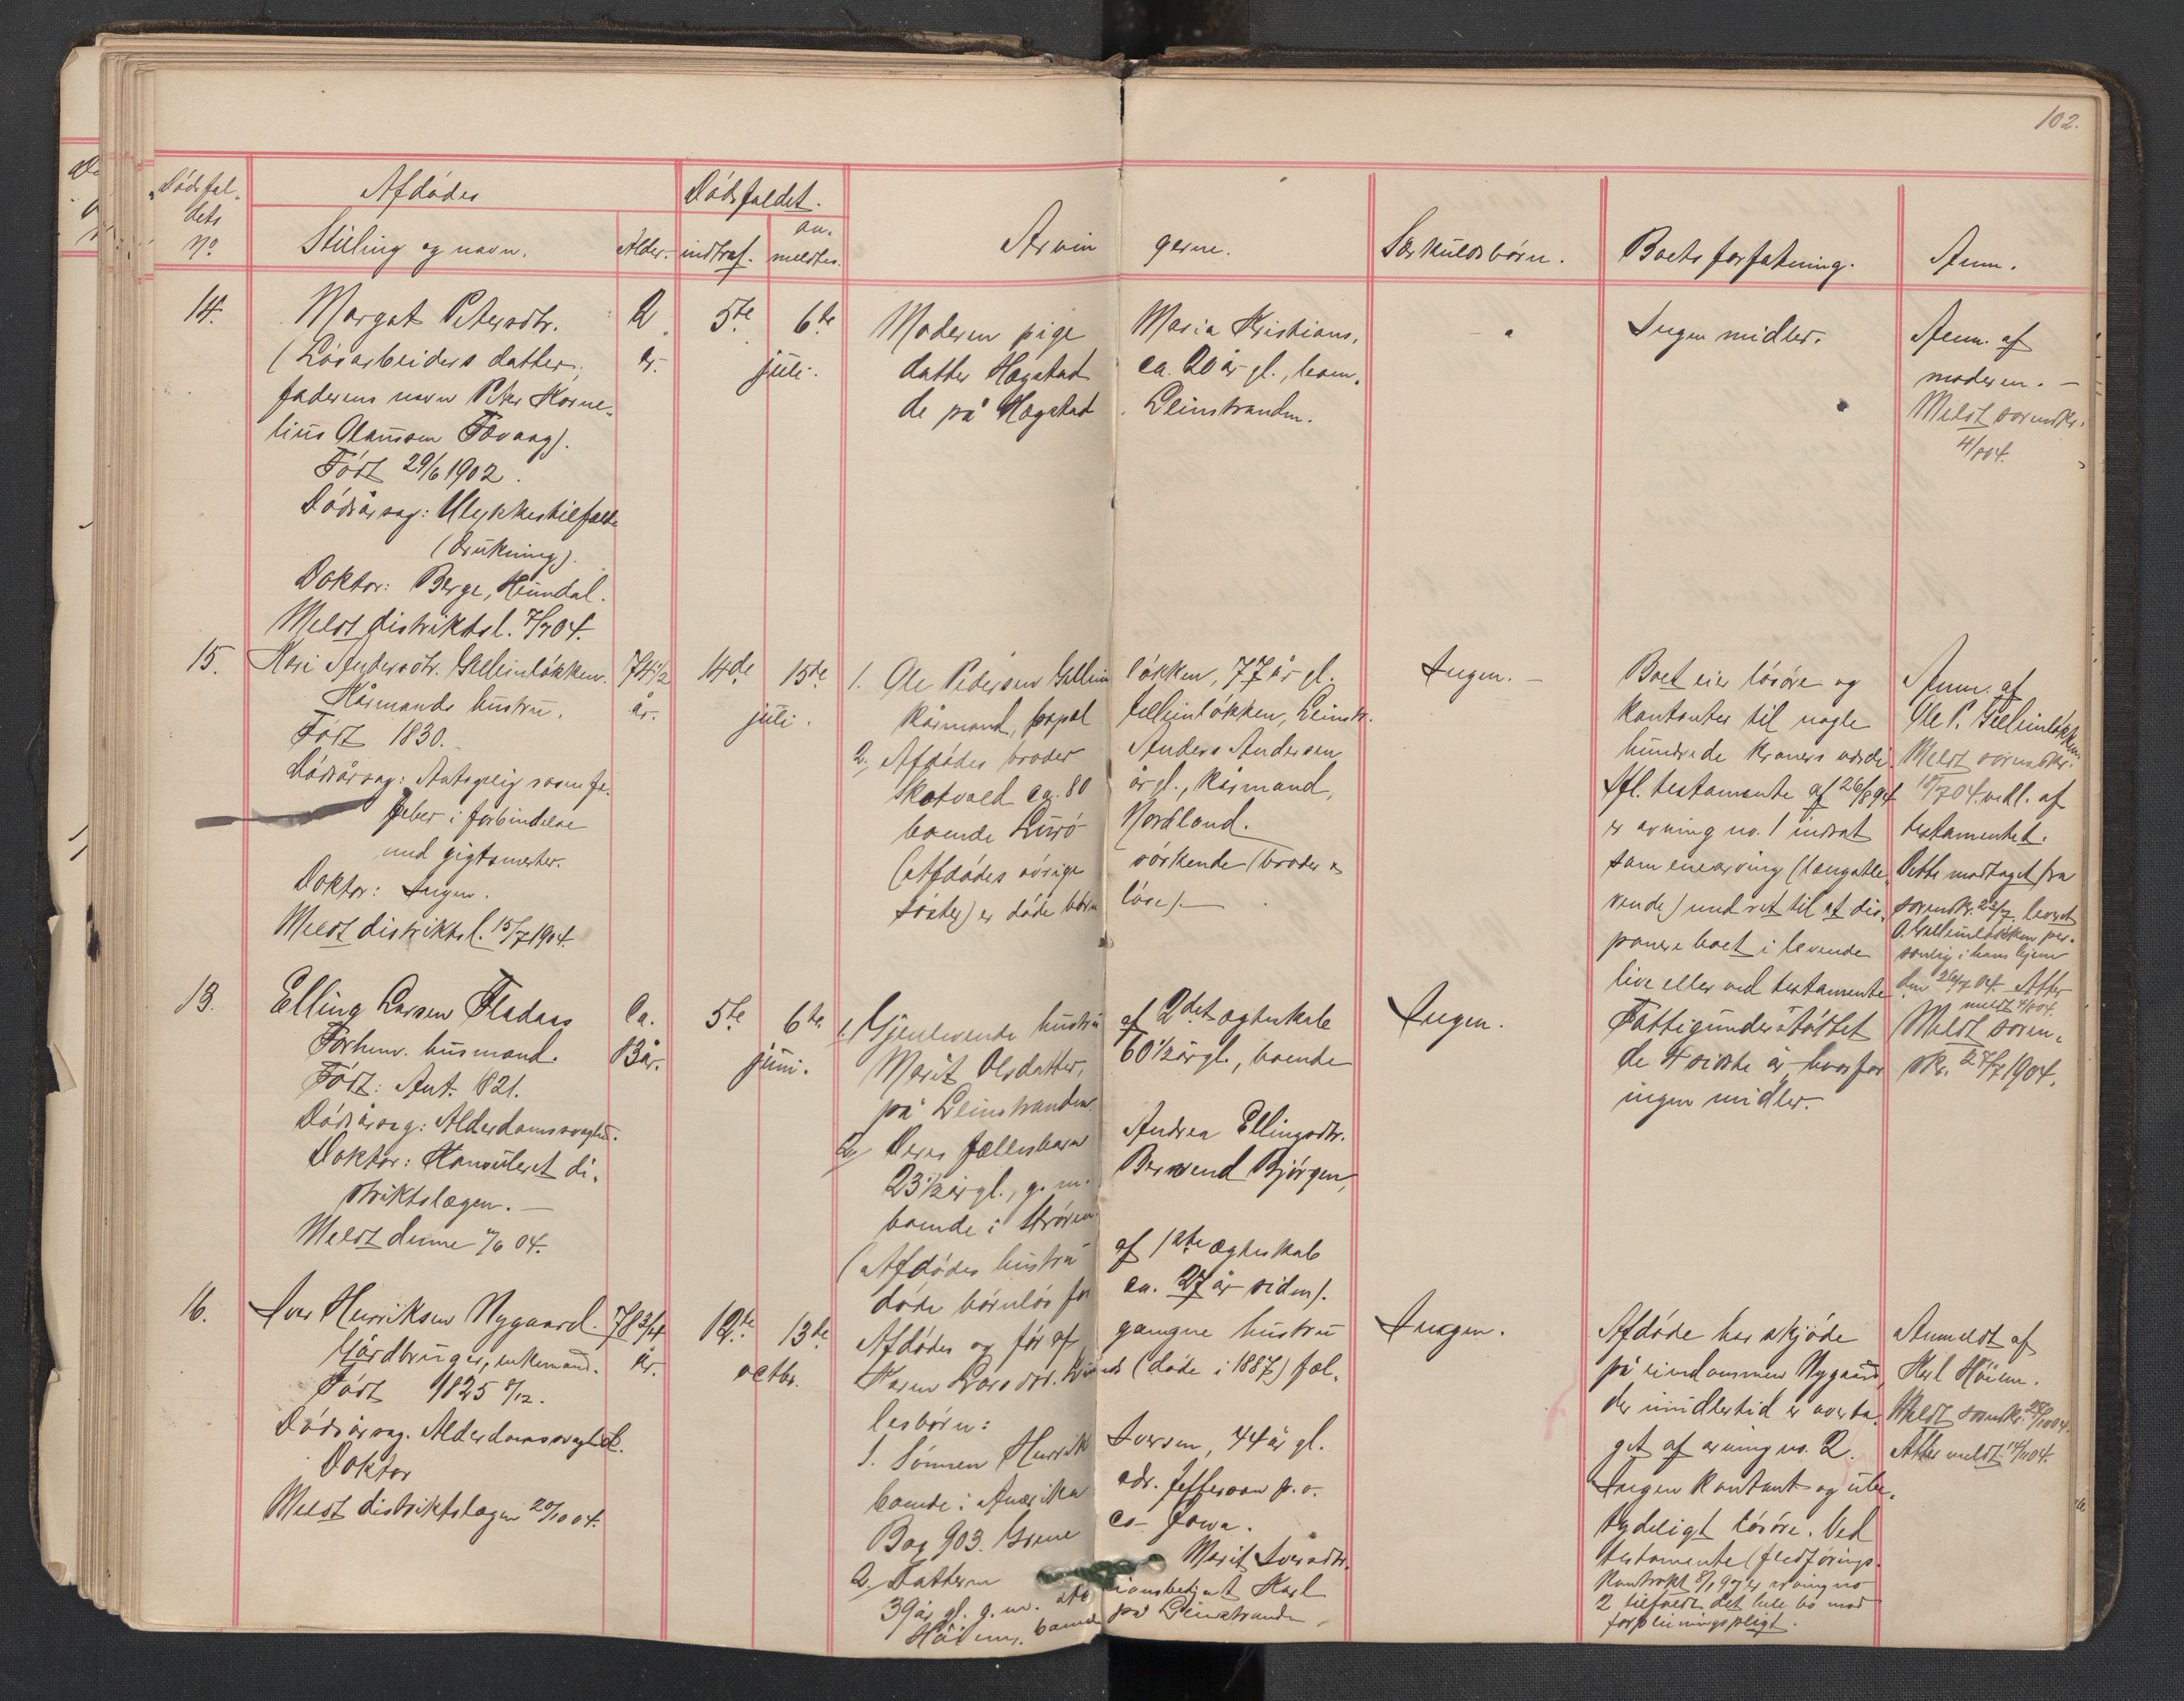 102.
Dødsfal-
dets
No.
Afdødes
Stilling og navn.
Alder.
Dødsfaldet.
indtraf.
an-
meldtes.
Arvin
gerne.
Særkuldsbørn.
Boets forfatning.
Anm.
14.
Margat Petersdtr.
(Løsarbeiders datter.
faderens navn Peter Korne-
lius Olaussen
Født 29/6 1902.
Dødsårsag: Ulykkestilfælde
(drukning).
Doktor: Berge, Heimdal.
Meldt distriktsl. 7/7 04.
2
år.
5te 6te
juli.
Moderen pige Maria Kristians-
datter Hagstad ca. 20 år gl., boen-
de på Hagstad, Leinstranden.
Ingen midler.
Anm. af
moderen. –
Meldt sorenskr.
15.
Kari Andersdtr. Gelleinløkken.
Kårmands hustru.
Født 1830.
Dødsårsag: Antagelig
feber i forbindelse
med gigtsmerter.
Doktor: Ingen.
Meldt distriktsl. 15/7 1904.
74 1/2
år.
14de 15de
juli.
1. Ole Pedersen Gellein løkken, 77 år gl.
kårmand, Gelleinløkken, Leinstr.
2. Afdødes broder Anders Andersen
Skatvald ca. 80 år gl., kårmand,
boende Lurø Nordland.
(Afdødes øvrige søskende (broder &
søster) er døde børn løse). –
Ingen. –
Boet eier løsøre og
kontanter til nogle
hundrede kroners værdi.
Ifl. testamente af 26/8 94
er arving no. 1 indsat
som enearving (længstle-
vende) med ret til at dis-
ponere boet i levende
live eller ved testamente.
Anm. af
Ole P. Gelleinløkken
Meldt sorenskr.
18/7 04. vedl. af
testamentet.
Dette modtaget fra
sorenskr. 23/7, leveret
O. Gelleinløkken per-
sonlig i hans hjem
den 26/7 04. Atter
meldt
13.
Elling Larsen Fladaas
Forhenv. husmand.
Født: Ant. 1821.
Dødsårsag: Alderdomssvaghed.
Doktor: Konsuleret di-
striktslægen. –
Meldt denne 04.
Ca.
83 år.
5te 6te
juni.
1. Gjenlevende hustru af 2det ægteskab
Marit Olsdatter, 60 1/2 år gl., boende
på Leinstranden.
2. Deres fællesbarn Andrea Ellingsdtr.
23 1/2 år gl., g. m. Bernt Bjørgen,
boende i Støren.
(Afdødes hustru af 1ste ægteskab
døde børnløs for ca. 27 år siden).
Ingen.
Fattigunderstøttet
de 4 sidste år, hvorfor
ingen midler.
Meldt soren-
skr. 27/7 1904.
16.
Iver Henriksen Nygaard.
Gårdbruger, enkemand.
Født 1825 8/12.
Dødsårsag. Alderdomssvaghed.
Doktor
Meldt distriktslægen 20/10 04.
78 3/4
år.
12te 13de
octbr.
Afdødes og før af gangne hustru
Karen Larsdtr. (døde i 1887) fæl-
lesbørn:
1. Sønnen Henrik Iversen, 44 år gl.
boende i Amerika adr. Jefferson p. o.
Box 903. Greene co – Jowa.
2. Datteren Marit Iversdtr.
39 år gl. g. m. stationsbetjent Karl
Høiem, boende på Leinstranden.
Ingen.
Afdøde har skjøde
på eiendommen Nygaard,
der imidlertid er overta-
get af arving no. 2.
Ingen kontant og ube-
tydeligt løsøre. Ved
testamente (fledførings-
kontrakt 8/1 97 er arving no
2 tilfaldt det hele bo mod
forpleiningspligt.
Anmeldt af
Karl Høiem.
Meldt sorenskr. 28/10 04.
Atter meldt